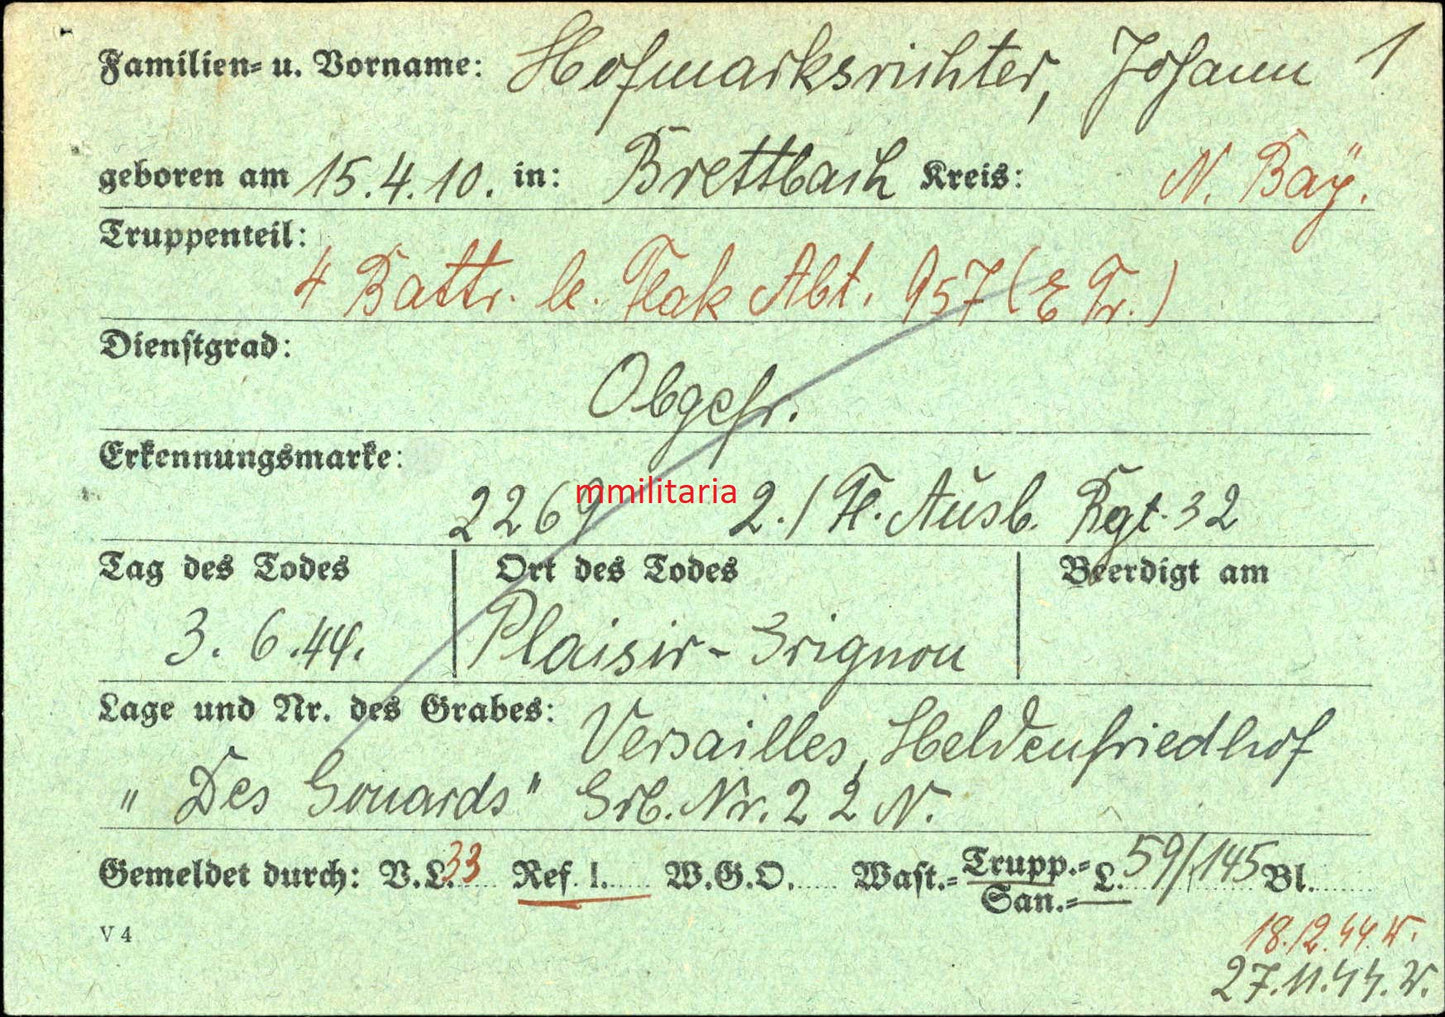 Familien- u. Vorname: Hofmarksrichter, Johann 1
geboren am 15.4.10. in: Brettbach Kreis: N. Bay.
Truppenteil:
4 Battr. le. Flak Abt. 957 (E Tr.)
Dienstgrad:
Obgefr.
Erkennungsmarke:
2269 2./Fl. Ausb. Rgt. 32
mmilitaria
Tag des Todes Ort des Todes Beerdigt am
3.6.44. Plaisir-Grignon
Lage und Nr. des Grabes: Versailles, Heldenfriedhof
"Des Gonards" Grb. Nr. 22 N.
Gemeldet durch: V.L. 33 Ref. I. W.G.O. Wast.- Trupp.- L. 59/145 Bl.
San.-
V 4
18.12.44.
27.11.44.